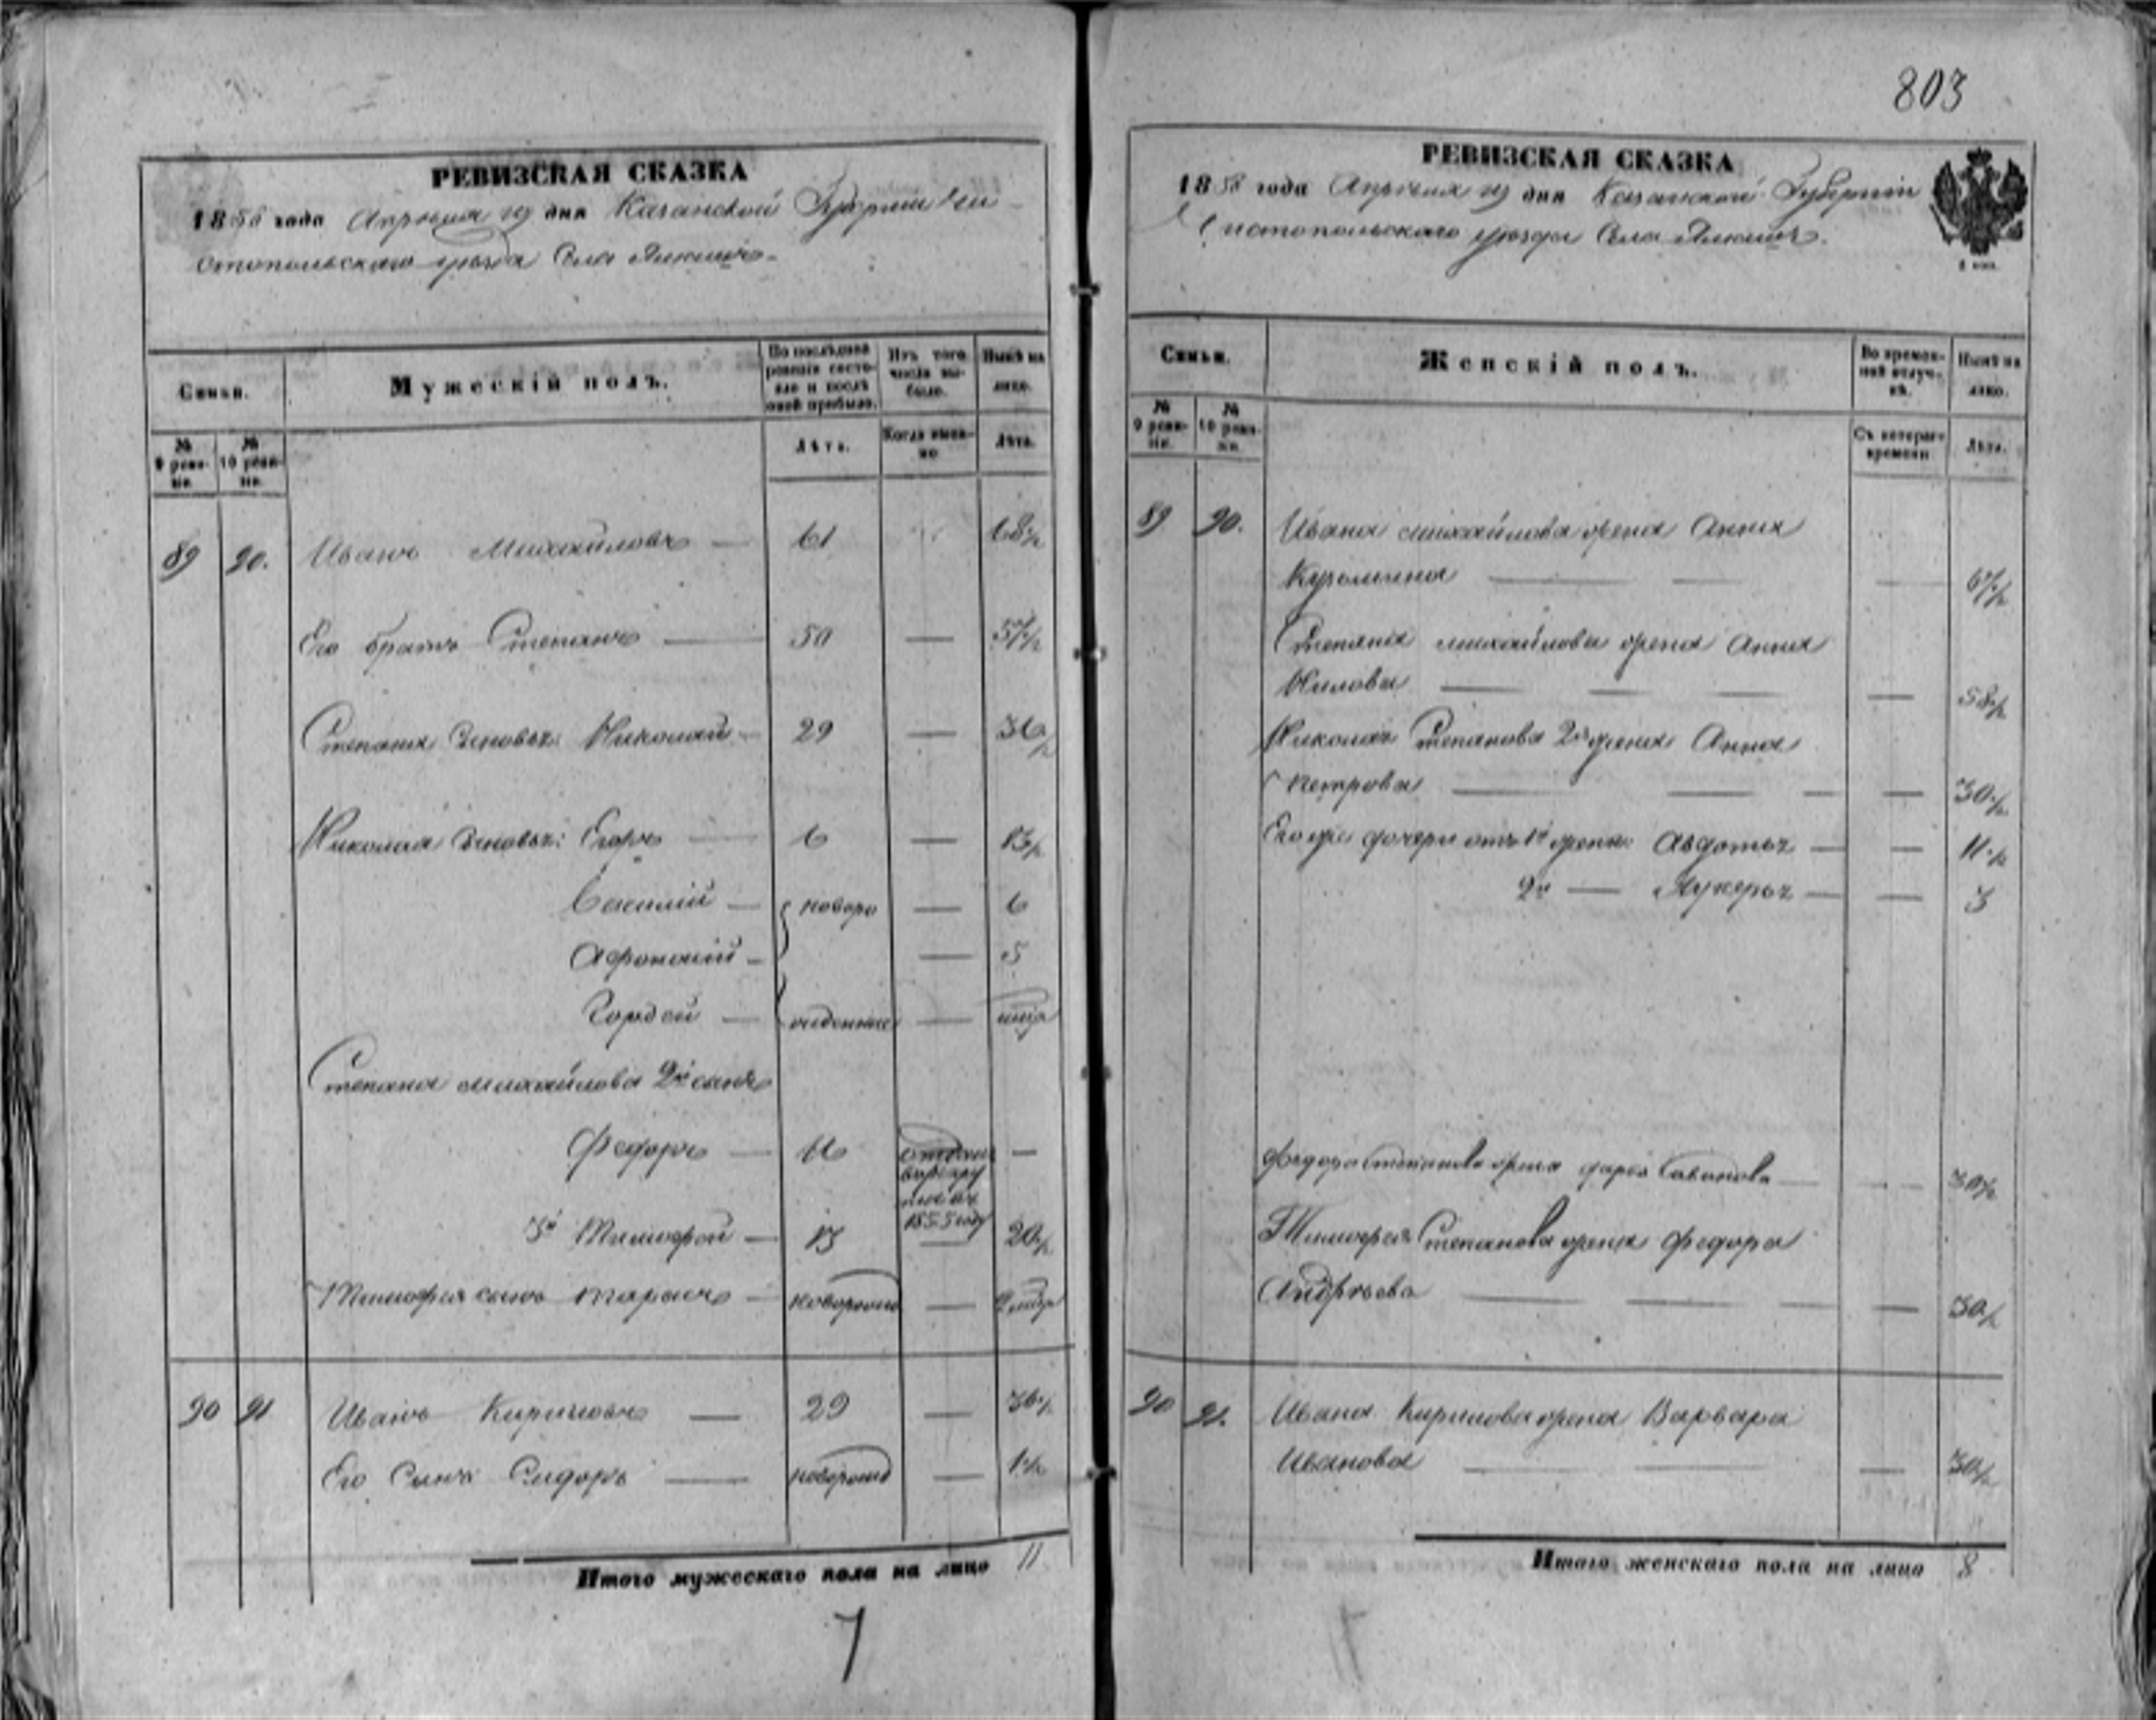 803
РЕВИЗСКАЯ СКАЗКА
1858 года Апрѣля дня Казанской Губерніи Чи-
стопольскаго уѣзда Села
Семьи.
Мужескій полъ.
По послѣдней ревизіи состояло и послѣ оной прибыло.
Изъ того числа выбыло.
Нынѣ на лицо.
№ 9 ревизіи.
№ 10 ревизіи.
Лѣта.
Когда имянно.
Лѣта.
89 90. Иванъ Михайловъ — 61 68½
Его братъ Степанъ — 50 — 57½
Степана Сыновья: Николай — 29 — 36½
Николая Сыновья: Егоръ — 6 — 13½
Василій — новоро — 6
Афонасій — — 5
Гордей — жденные —
Степана Михайлова 2й сынъ
Федоръ — 26 —
1855 году
3й Тимофей — 13 — 20½
Тимофея сынъ Тарасъ — новорожд —
90 91 Иванъ Кириловъ — 29 — 36½
Его Сынъ Сидоръ — новорожд — 1½
Итого мужескаго пола на лицо 11
7
РЕВИЗСКАЯ СКАЗКА
1858 года Апрѣля дня Казанской Губерніи
Чистопольскаго уѣзда Села
Семьи.
Женскій полъ.
Во временной отлучкѣ.
Нынѣ на лицо.
№ 9 ревизіи.
№ 10 ревизіи.
Съ котораго времени
Лѣта.
89 90. Ивана Михайлова жена Анна
Кузьмина — — — 67½
Степана Михайлова жена Анна
Нилова — — — — 58½
Николая Степанова 2я жена Анна
Петрова — — — — 30½
Его же дочери отъ 1й жены Авдотья — — 11½
2й — Лукерья — — 3
Федора Степанова жена Дарья Савanова — 30½
Тимофея Степанова жена Федора
Андрѣева — — — — 30½
90 91. Ивана Кирилова жена Варвара
Иванова — — — 30½
Итого женскаго пола на лицо 8